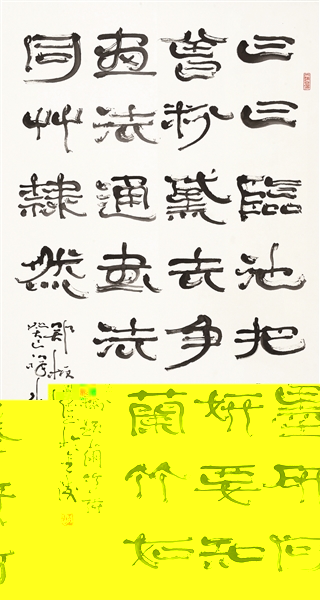 日日臨池把墨研何
曾粉黛去争妍要知
畫法通書法蘭竹如
同艸隸然
鄭板